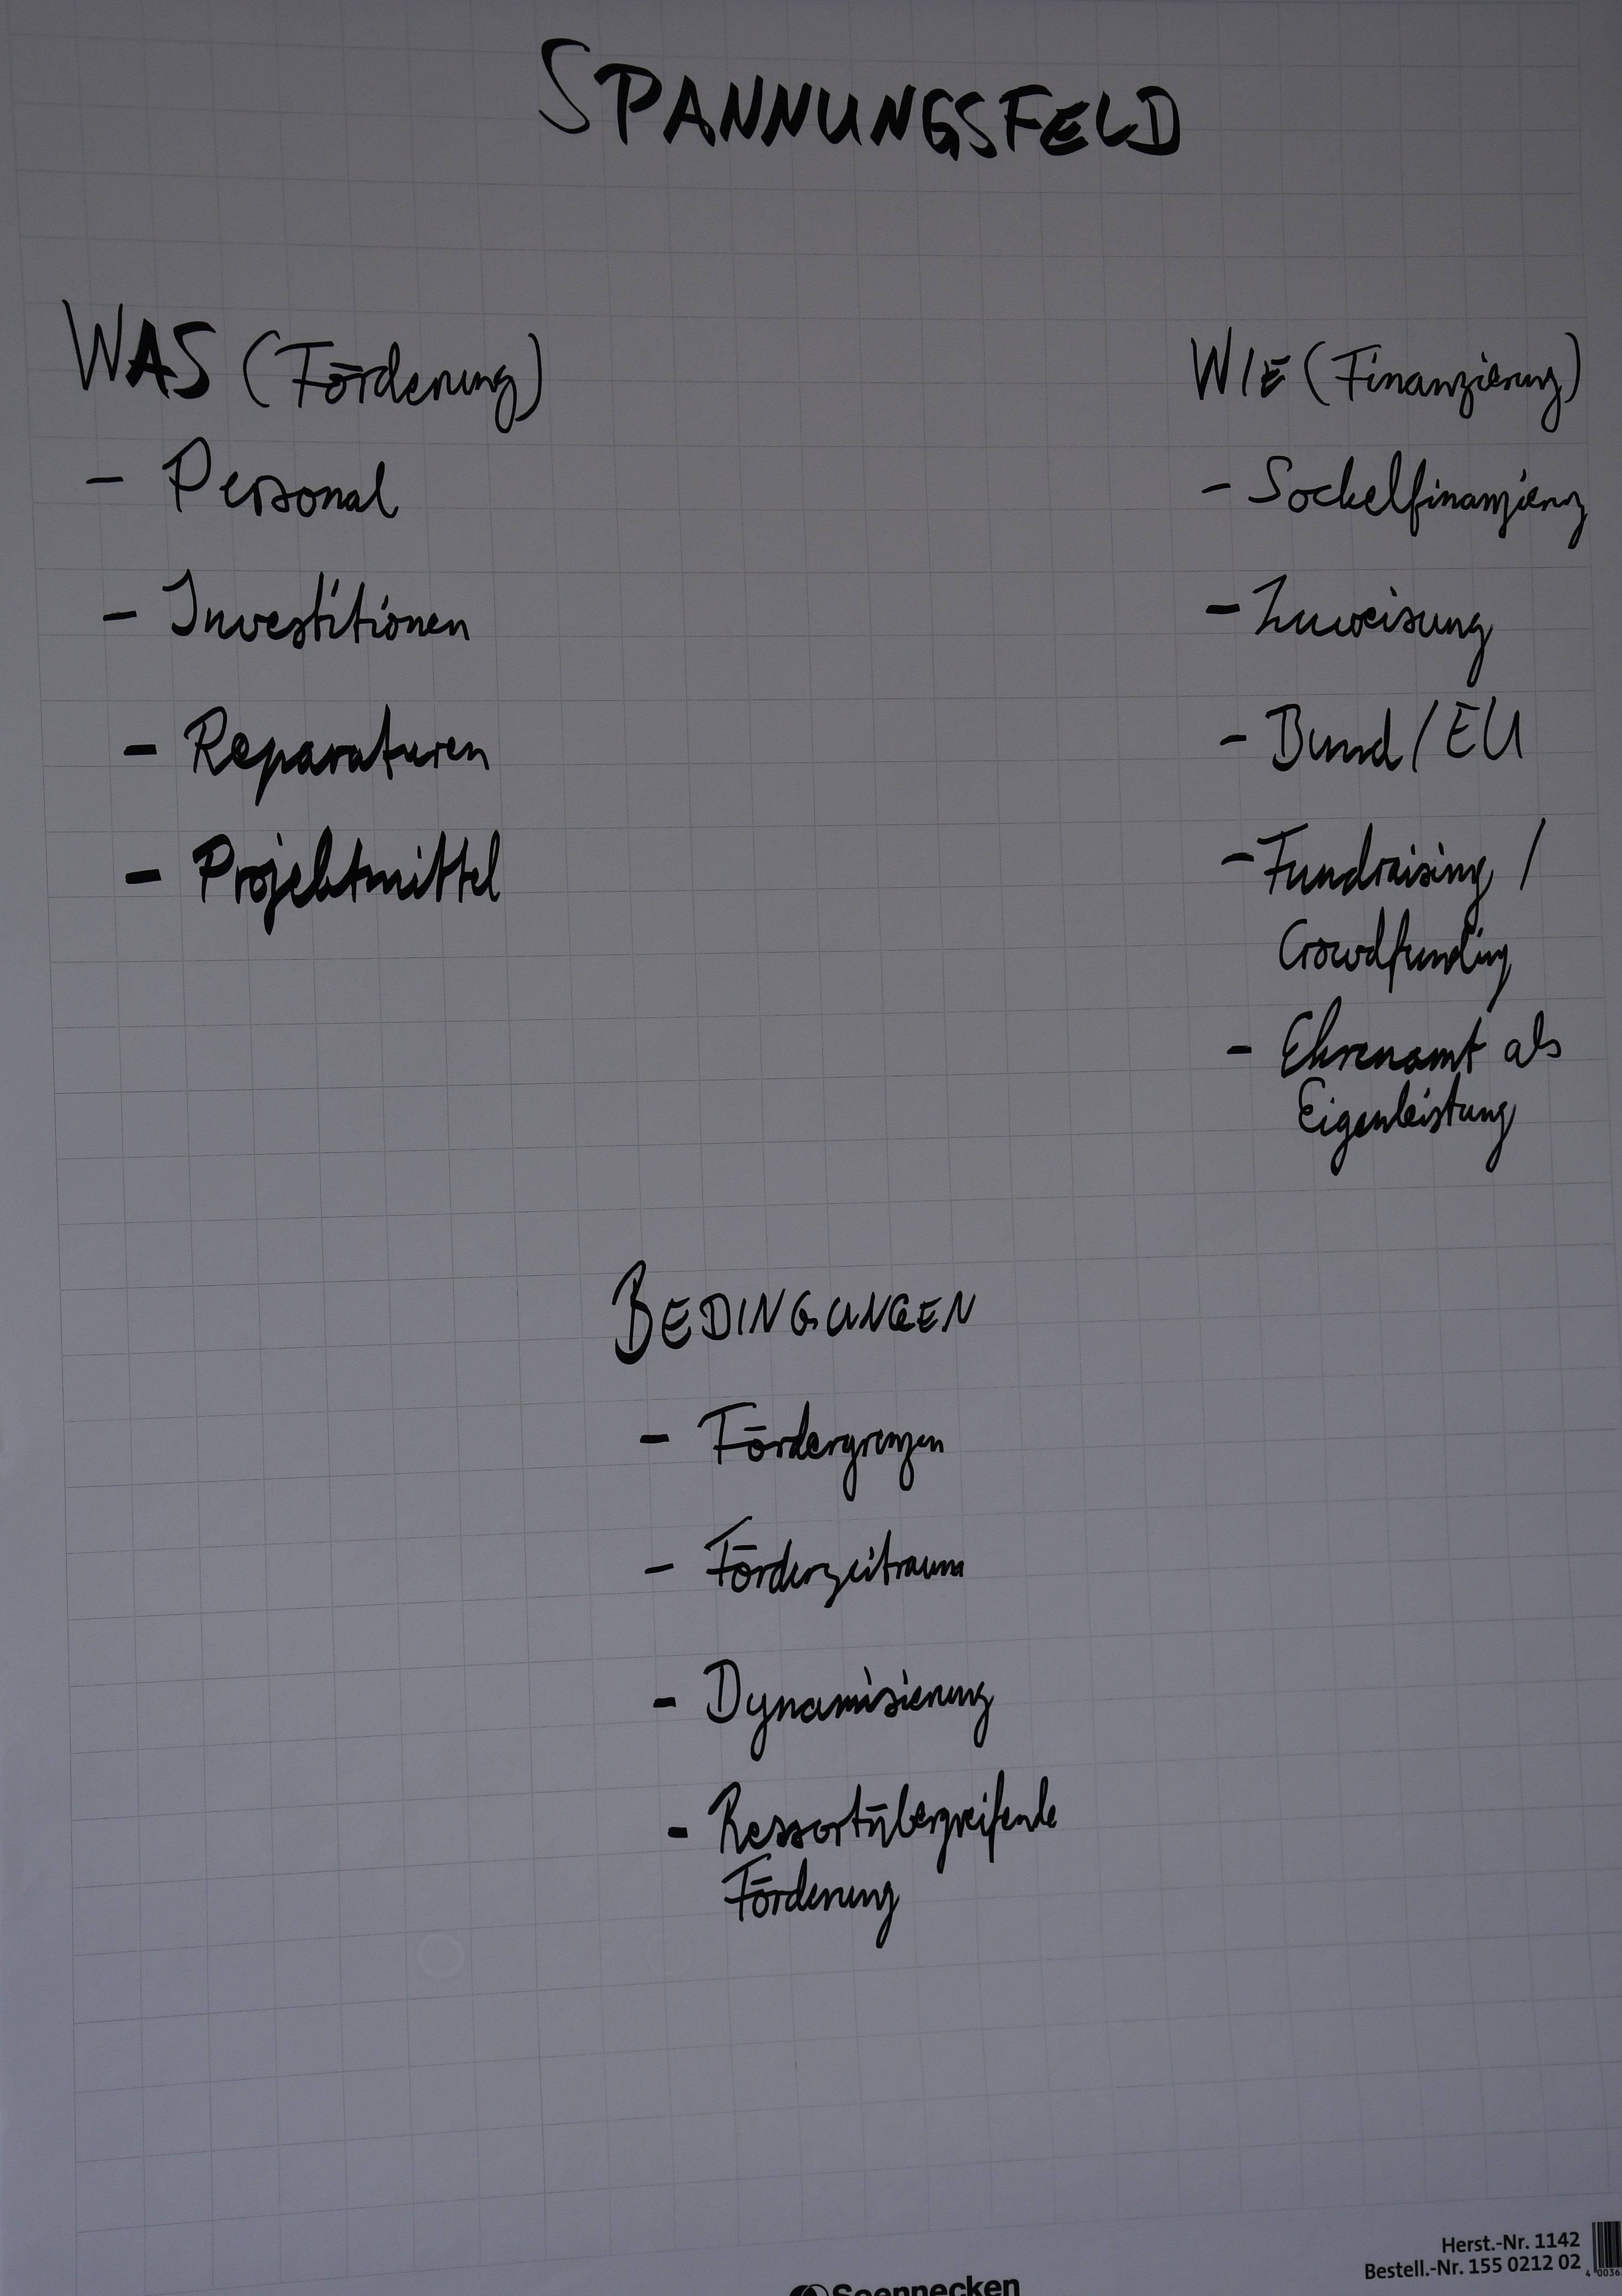 SPANNUNGSFELD
WAS (Förderung)
- Personal
- Investitionen
- Reparaturen
- Projektmittel
WIE (Finanzierung)
- Sockelfinanzierung
- Zuweisung
- Bund / EU
- Fundraising /
Crowdfunding
- Ehrenamt als
Eigenleistung
BEDINGUNGEN
- Fördergrenzen
- Förderzeitraum
- Dynamisierung
- Ressortübergreifende
Förderung
Herst.-Nr. 1142
Bestell.-Nr. 155 0212 02
Soennecken